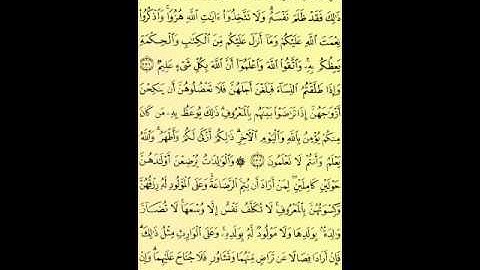 ذَٰلِكَ فَقَدْ ظَلَمَ نَفْسَهُۥ ۚ وَلَا تَتَّخِذُوٓا۟ ءَايَٰتِ ٱللَّهِ هُزُوًا ۚ وَٱذْكُرُوا۟
نِعْمَتَ ٱللَّهِ عَلَيْكُمْ وَمَآ أَنزَلَ عَلَيْكُم مِّنَ ٱلْكِتَٰبِ وَٱلْحِكْمَةِ
يَعِظُكُم بِهِۦ ۚ وَٱتَّقُوا۟ ٱللَّهَ وَٱعْلَمُوٓا۟ أَنَّ ٱللَّهَ بِكُلِّ شَىْءٍ عَلِيمٌ ﴿٢٣١﴾
وَإِذَا طَلَّقْتُمُ ٱلنِّسَآءَ فَبَلَغْنَ أَجَلَهُنَّ فَلَا تَعْضُلُوهُنَّ أَن يَنكِحْنَ
أَزْوَٰجَهُنَّ إِذَا تَرَٰضَوْا۟ بَيْنَهُم بِٱلْمَعْرُوفِ ۗ ذَٰلِكَ يُوعَظُ بِهِۦ مَن كَانَ
مِنكُمْ يُؤْمِنُ بِٱللَّهِ وَٱلْيَوْمِ ٱلْءَاخِرِ ۗ ذَٰلِكُمْ أَزْكَىٰ لَكُمْ وَأَطْهَرُ ۗ وَٱللَّهُ
يَعْلَمُ وَأَنتُمْ لَا تَعْلَمُونَ ﴿٢٣٢﴾ ۞ وَٱلْوَٰلِدَٰتُ يُرْضِعْنَ أَوْلَٰدَهُنَّ
حَوْلَيْنِ كَامِلَيْنِ ۖ لِمَنْ أَرَادَ أَن يُتِمَّ ٱلرَّضَاعَةَ ۚ وَعَلَى ٱلْمَوْلُودِ لَهُۥ رِزْقُهُنَّ
وَكِسْوَتُهُنَّ بِٱلْمَعْرُوفِ ۚ لَا تُكَلَّفُ نَفْسٌ إِلَّا وُسْعَهَا ۚ لَا تُضَآرَّ
وَٰلِدَةٌۢ بِوَلَدِهَا وَلَا مَوْلُودٌ لَّهُۥ بِوَلَدِهِۦ ۚ وَعَلَى ٱلْوَارِثِ مِثْلُ ذَٰلِكَ ۗ
فَإِنْ أَرَادَا فِصَالًا عَن تَرَاضٍ مِّنْهُمَا وَتَشَاوُرٍ فَلَا جُنَاحَ عَلَيْهِمَا ۗ وَإِنْ